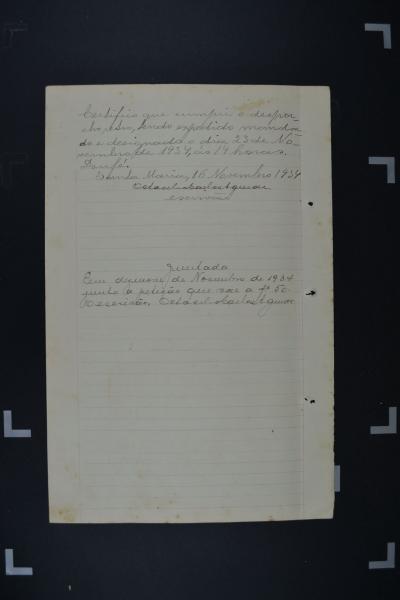 Certifico que cumpri o despa-
cho, retro, sendo expedido manda-
do e designado o dia 23 de No-
vembro de 1934, ás 14 horas.
Dou fé.
Santa Maria, 16 Novembro 1934
escrivão
Juntada
Em de Novembro de 1934
junto a petição que vae a fs 50
O escrivão,